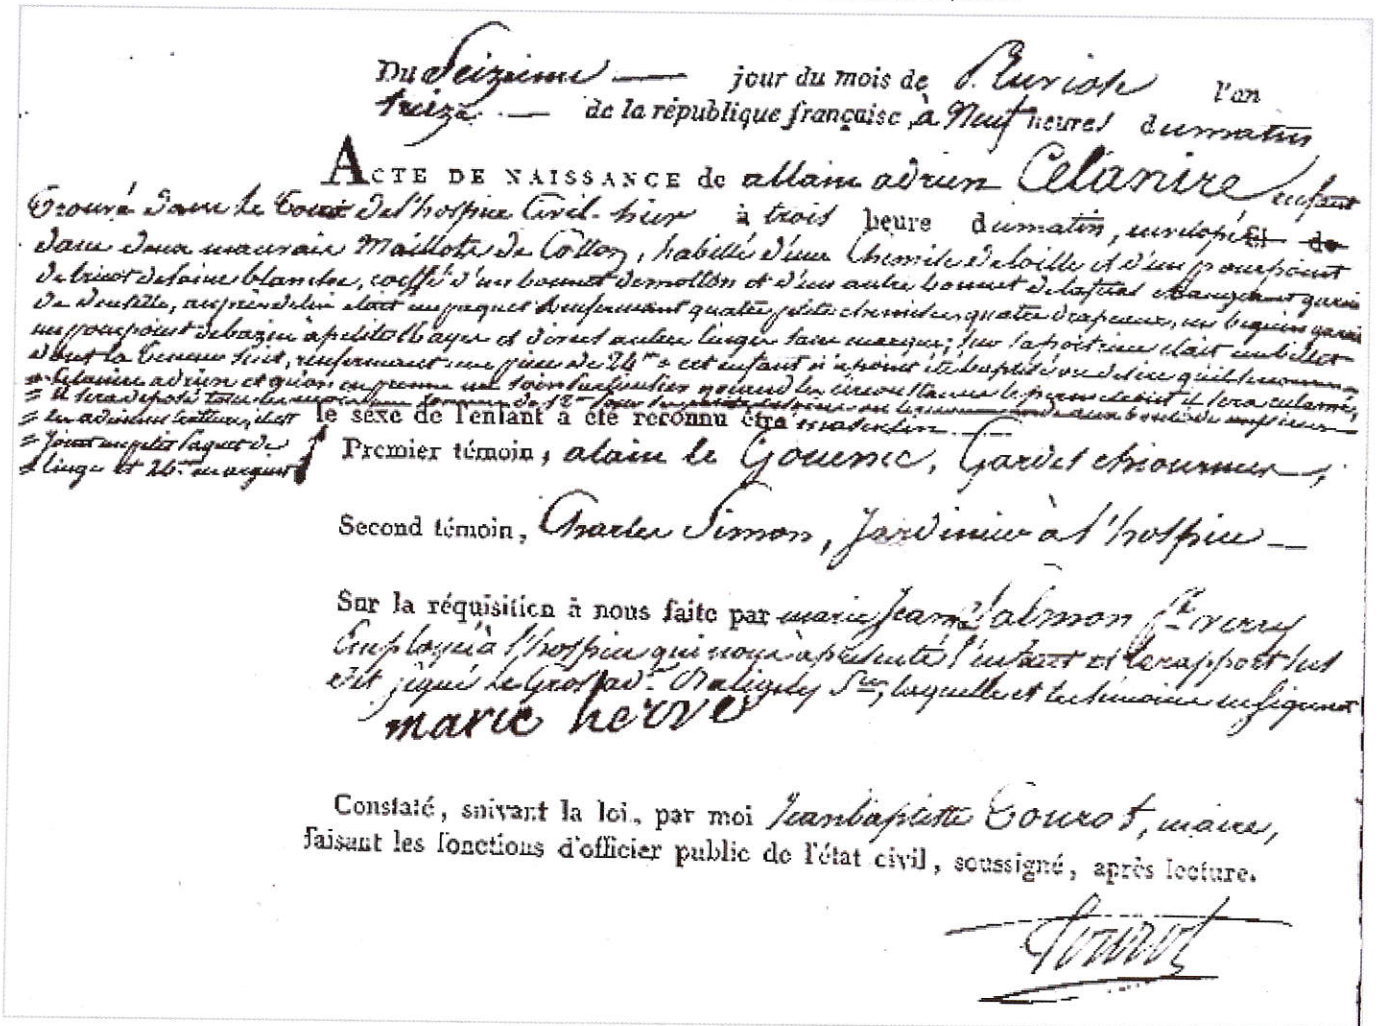 Du Seizieme jour du mois de Pluviose l'an
treize de la république française, à Neuf heures du matin
ACTE DE NAISSANCE de allain adrien Celanire enfant
trouvé dans le tour de l'hospice Civil hier à trois heure du matin, envelopé et de
dans deux mauvais Maillots de Cotton, habillé d'une Chemise de toille et d'un pourpoint
de tricot de laine blanche, coeffé d'un bonnet de mollon et d'un autre bonnet de taffetas garni
de dentelle, auprès de lui etait un paquet renfermant quatre petite chemises, quatre drapeaux, un beguin garni
un pourpoint de bazin à petitte Rayes et divers autres linges sans marque; sur la poitrine etait un billet
dont la teneur suit, renfermant une piece de 24 cet enfant n'a point été baptisé on desire qu'il se nomme
Celanire adrien et qu'on en prenne un soin particulier quand les circonstances le permettront il sera reclamé,
il sera deposé tous les mois une somme de 12
joint un petit paquet de
linge et 24 en argent
le sexe de l'enfant a été reconnu être masculin
Premier témoin, alain le Gouenec, Gardes chiourmes,
Second témoin, Charles Simon, Jardinier à l'hospice
Sur la réquisition à nous faite par marie Jeanne Salmon
Employé à l'hospice qui nous a présenté l'enfant et le rapport
dit signé le laquelle et les témoins ont signé
marie herve
Constaté, suivant la loi, par moi Jean baptiste Tourot, maire,
faisant les fonctions d'officier public de l'état civil, soussigné, après lecture.
Tourot